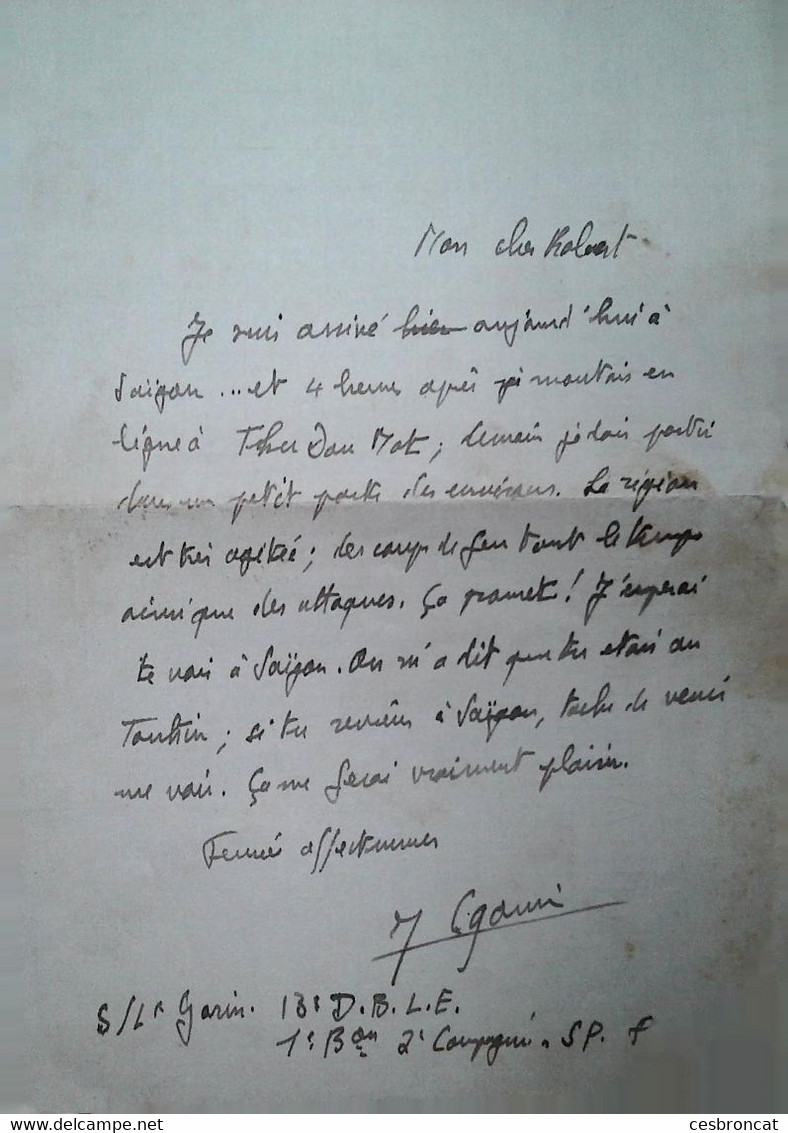 Mon cher Robert
Je suis arrivé hier aujourd'hui à
Saïgon ... et 4 heures après je montais en
ligne à Thu Dau Mot ; demain je dois partir
dans un petit poste des environs. La région
est très agitée ; des coups de feu tout le temps
ainsi que des attaques. Ça promet ! J'esperai
te voir à Saïgon. On m'a dit que tu etais au
Tonkin ; si tu reviens à Saïgon, tache de venir
me voir. Ça me ferai vraiment plaisir.
affectueuses
S/Lt Garin. 13e D.B.L.E.
1e Bon 2e Compagnie. SP.
cesbroncat